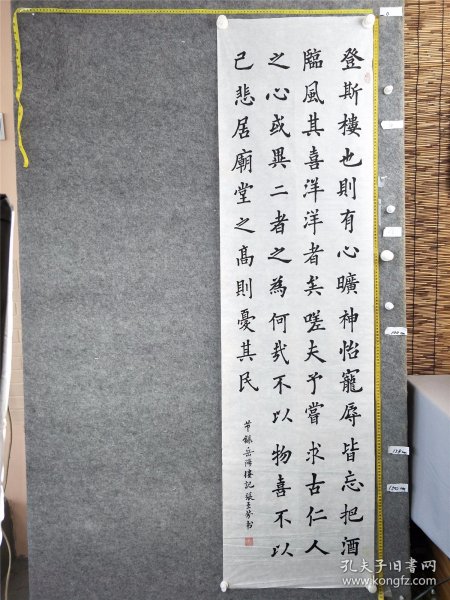 登斯樓也則有心曠神怡寵辱皆忘把酒
臨風其喜洋洋者矣嗟夫予嘗求古仁人
之心或異二者之為何哉不以物喜不以
己悲居廟堂之高則憂其民
节録岳陽樓記張玉芳书
孔夫子旧书网
www.kongfz.com